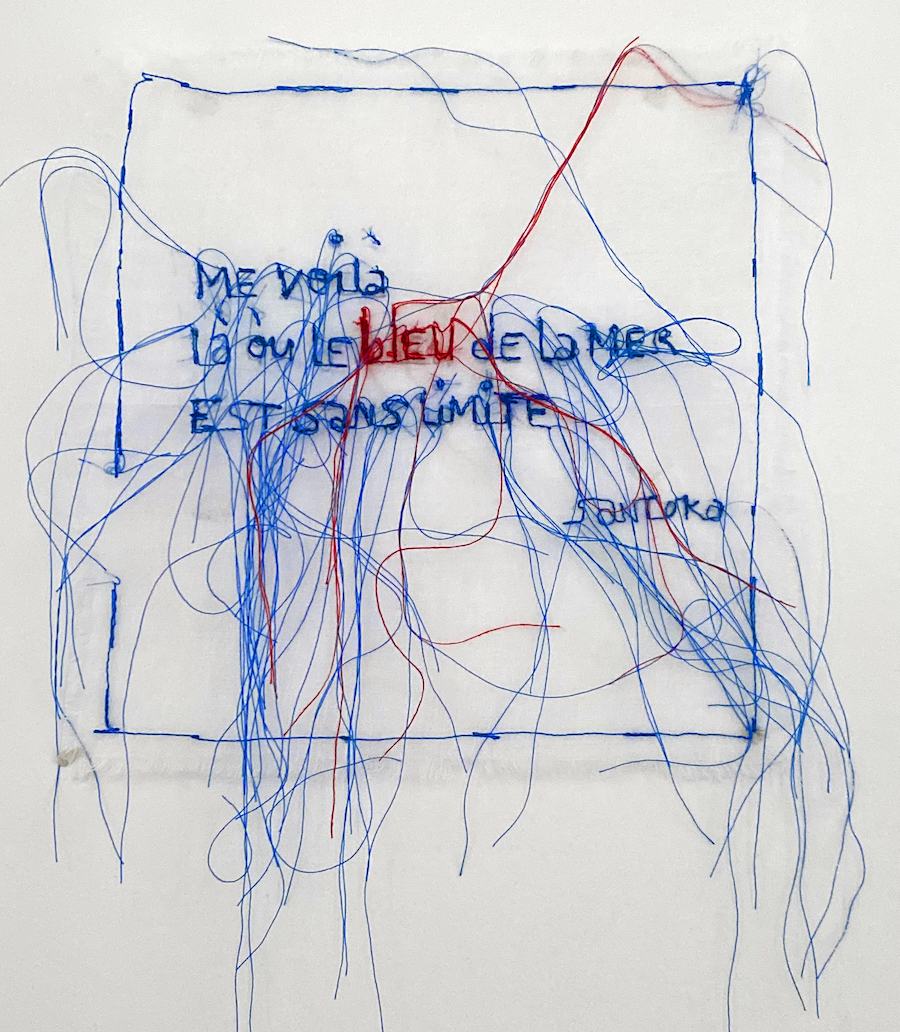 ME voilà
là où LE blEU dE la MER
EST SaNS LiMiTE
SaNToka